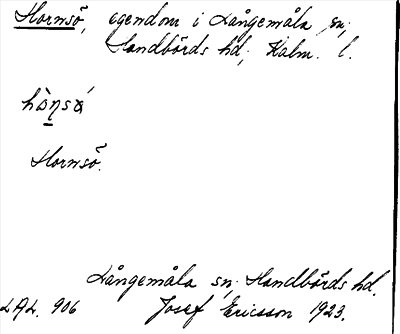 Hornsö, egendom i Långemåla sn,
Handbörds hd, Kalm. l.
Hornsö.
Långemåla sn, Handbörds hd.
LAL. 906 Josef Ericsson 1923.